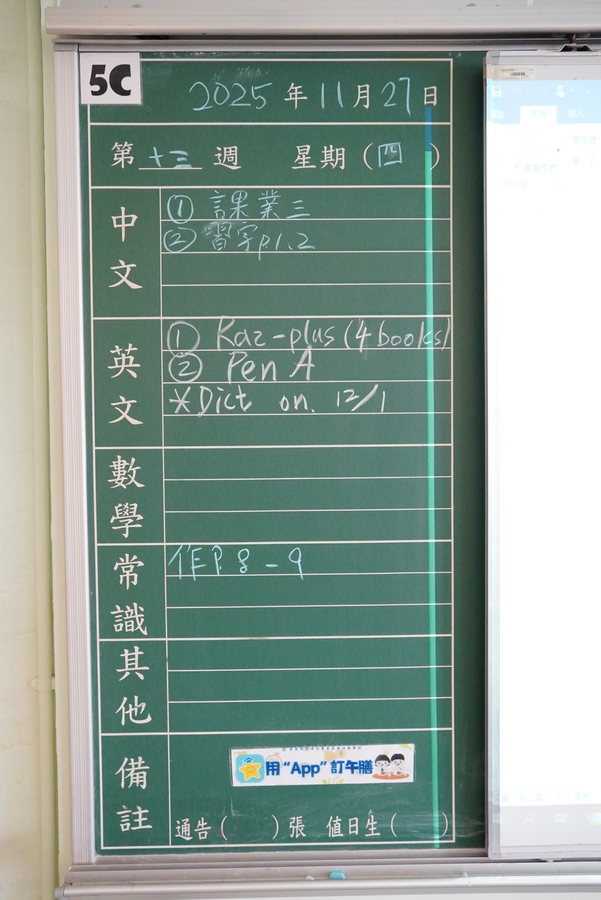 5C
2025年11月27日
第十三週 星期(四)
中文
① 課業三
② 習字p.1,2
英文
① Raz-plus (4 books)
② Pen A
*Dict on. 12/1
數學
常識
作P.8-9
其他
備註
用“App”訂午膳
通告( )張 值日生( )